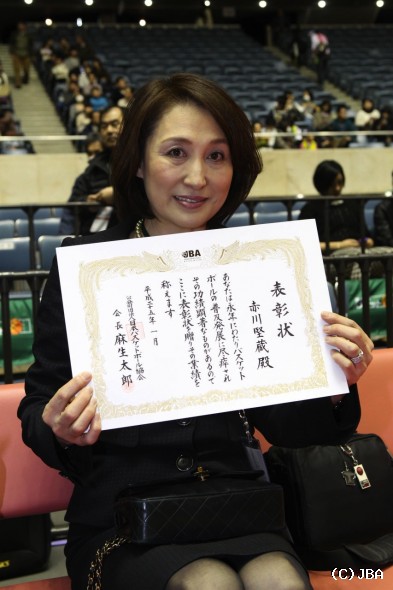 JBA
表彰状
赤川堅蔵殿
あなたは永年にわたりバスケット
ボールの普及発展に尽瘁され
その功績顕著なものがあるので
ここに表彰状を贈りその業績を
称えます
平成二十五年一月
公益財団法人日本バスケットボール協会
会長 麻生太郎
(C)JBA